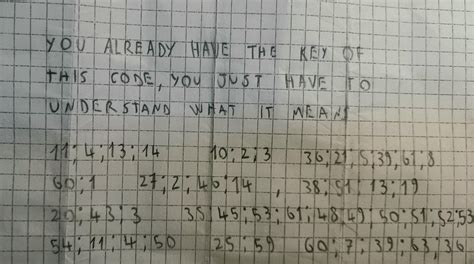 YOU ALREADY HAVE THE KEY OF
THIS CODE, YOU JUST HAVE TO
UNDERSTAND WHAT IT MEANS
11;4;13;14 10;2;3 36;21;5;39;61;8
60;1 27;2;46;14, 38;51;13;19
20;43;3 35;45;53;61;48;49;50;51;52;53
54;11;4;50 25;59 60;7;39;63;36